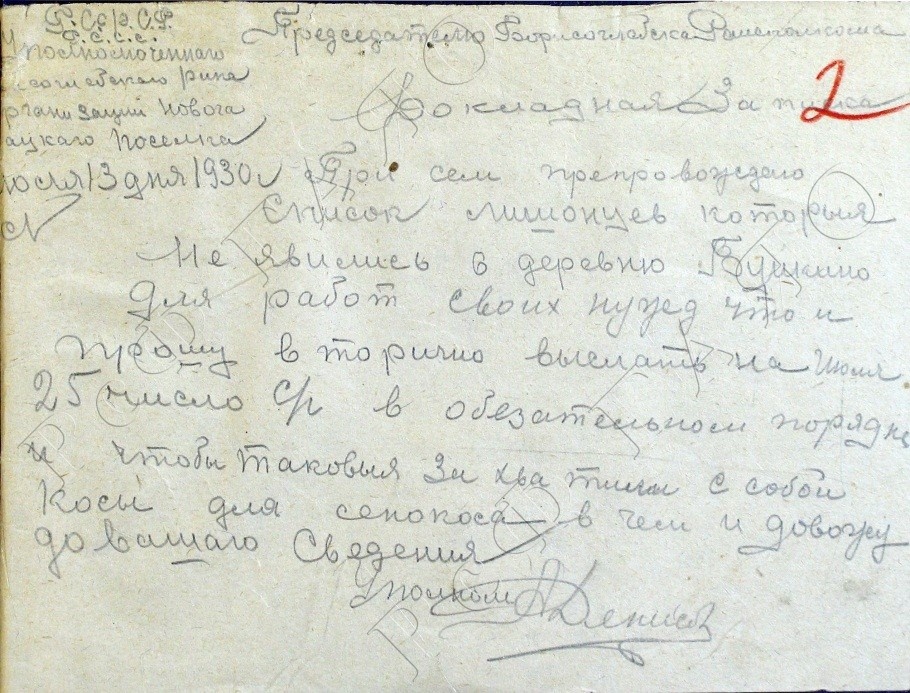 Р.С.Ф.С.Р.
С.С.С.Р.
Уполномоченнаго
соглебскаго рика
органи зации новога
ацкаго поселка
июля 13 дня 1930 г
№
Председателю Борисоглебска Райисполкома
Докладная За писка
2
При сем препровождаю
Список лишонцев которыя
Не явились в деревню Бушкино
Для работ своих нужд что и
прошу вторично выслать на Июля
25 число с/г в обезательном порядке
и чтобы таковыя За хва тили с собой
Косы для сенокоса в чем и довожу
до вашаго Сведения
Уполном Денисов